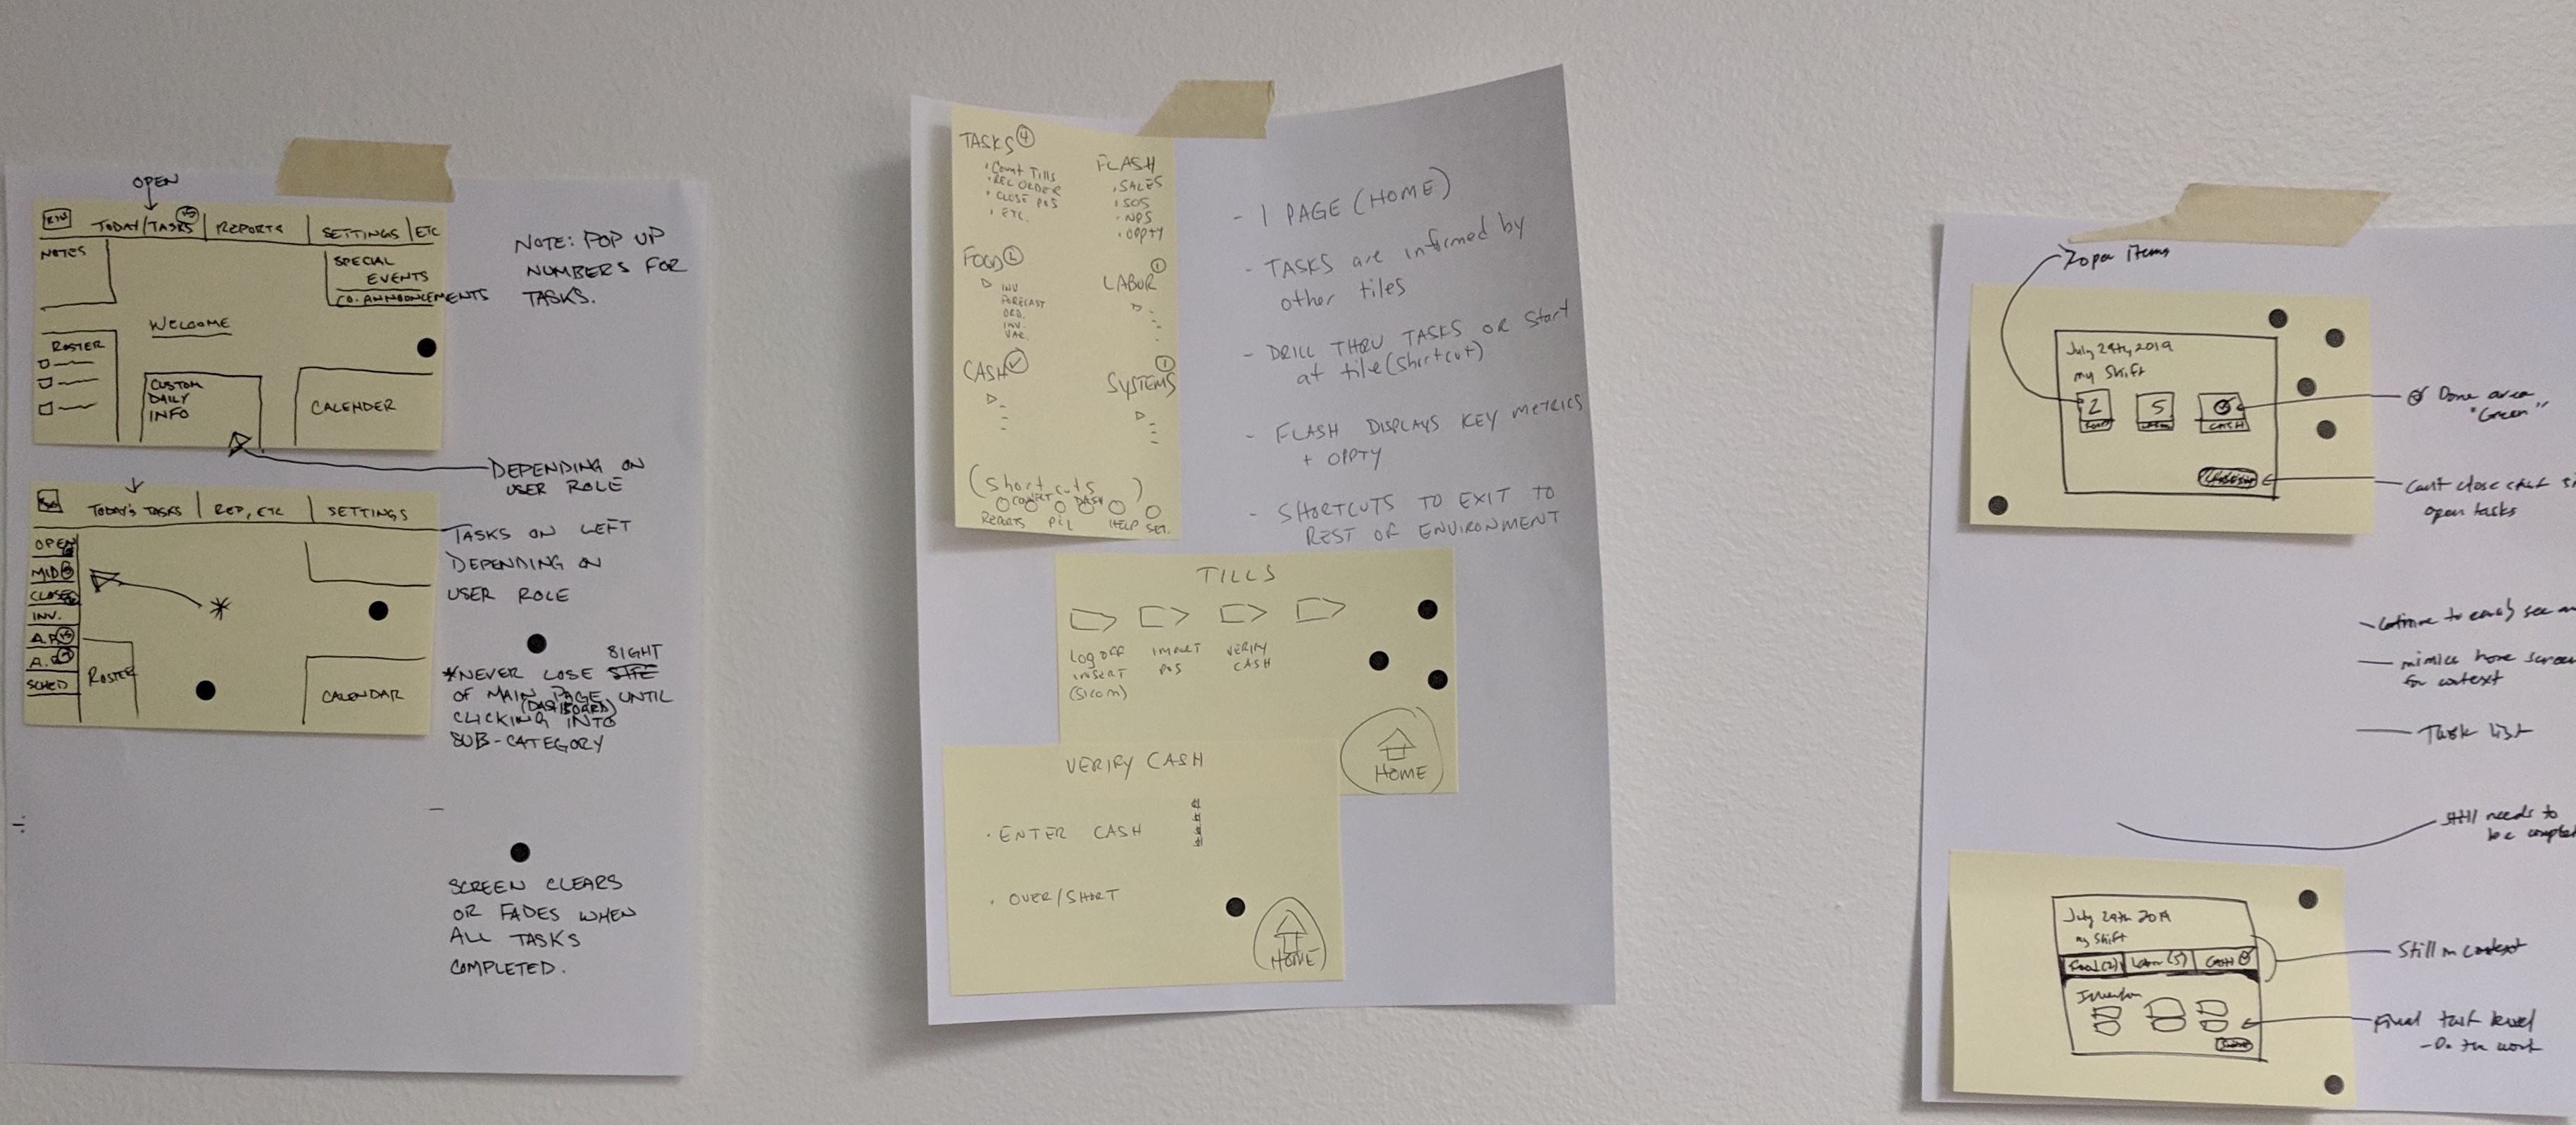 OPEN
TODAY/TASKS
REPORTS
SETTINGS
ETC
NOTES
SPECIAL
EVENTS
CO. ANNOUNCEMENTS
WELCOME
ROSTER
CUSTOM
DAILY
INFO
CALENDER
NOTE: POP UP
NUMBERS FOR
TASKS.
DEPENDING ON
USER ROLE
TODAY'S TASKS
REP, ETC
SETTINGS
OPEN
MID
CLOSE
INV.
SCHED
ROSTER
CALENDAR
TASKS ON LEFT
DEPENDING ON
USER ROLE
SIGHT
*NEVER LOSE
OF MAIN PAGE UNTIL
(DASHBOARD)
CLICKING INTO
SUB-CATEGORY
SCREEN CLEARS
OR FADES WHEN
ALL TASKS
COMPLETED.
TASKS 4
· Count Tills
· REC ORDER
· CLOSE POS
· ETC.
FLASH
· SALES
· SOS
· NPS
· OPPTY
FOOD 2
INV
FORECAST
ORD.
INV.
VAR.
LABOR 1
CASH ✓
SYSTEMS 1
(Shortcuts)
CONNECT DASH
REPORTS P&L HELP SET.
- 1 PAGE (HOME)
- TASKS are informed by
other tiles
- DRILL THRU TASKS OR Start
at tile (shortcut)
- FLASH DISPLAYS KEY METRICS
+ OPPTY
- SHORTCUTS TO EXIT TO
REST OF ENVIRONMENT
TILLS
Log off
insert
(Sicom)
IMPORT
POS
VERIFY
CASH
HOME
VERIFY CASH
· ENTER CASH
· OVER/SHORT
HOME
2 open items
July 29th, 2019
my Shift
2
5
CASH
Done area
"Green"
Can't close
open tasks
mimics home screen
for context
Task list
still needs to
be
July 29th 2019
my Shift
Food (2)
Labor (5)
CASH
Still in context
Final task level
- Do the work